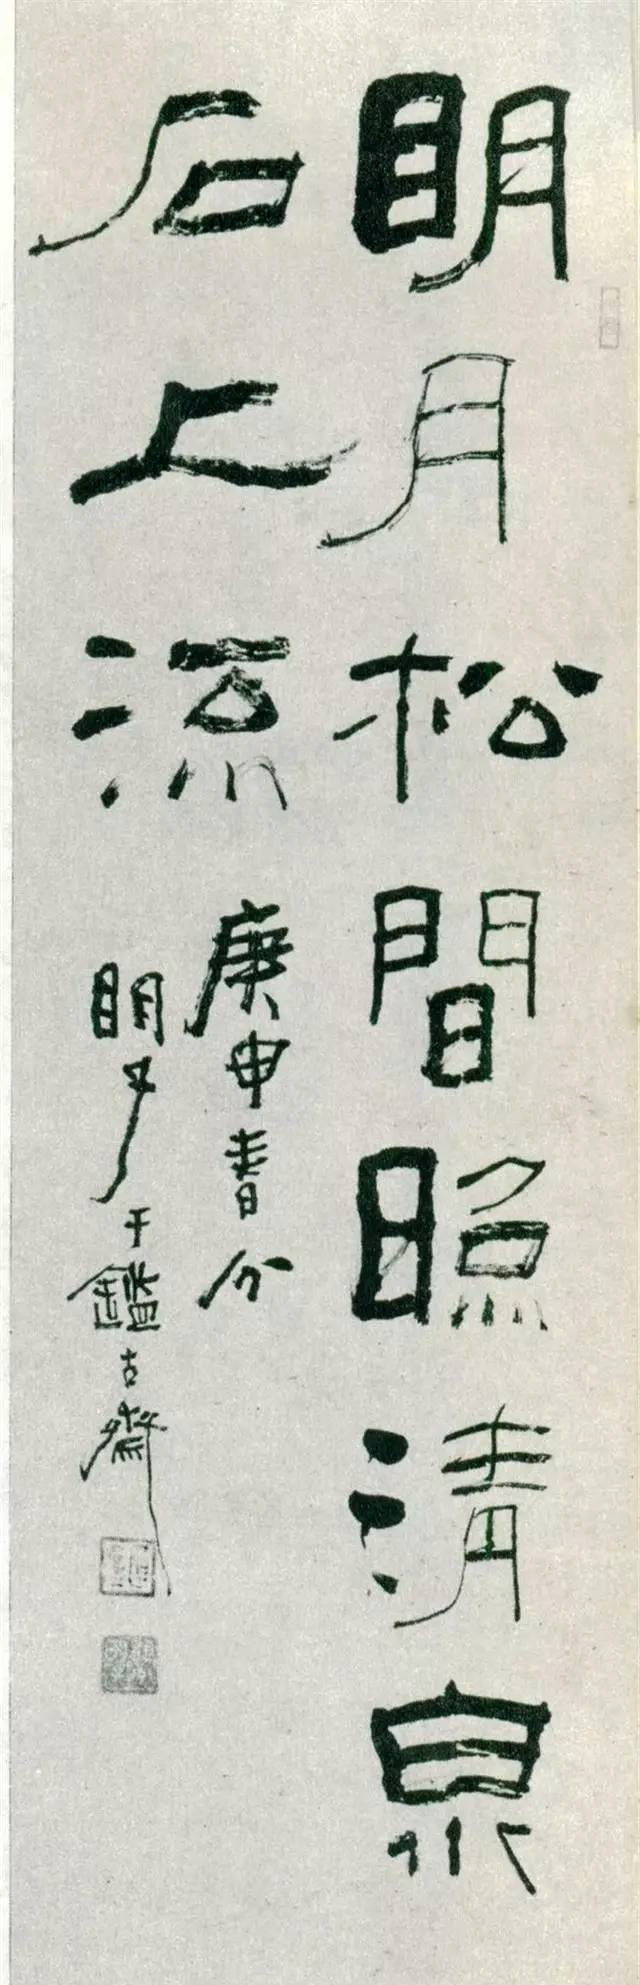 明月松間照清泉
石上流
庚申春分
明于鑑古齋